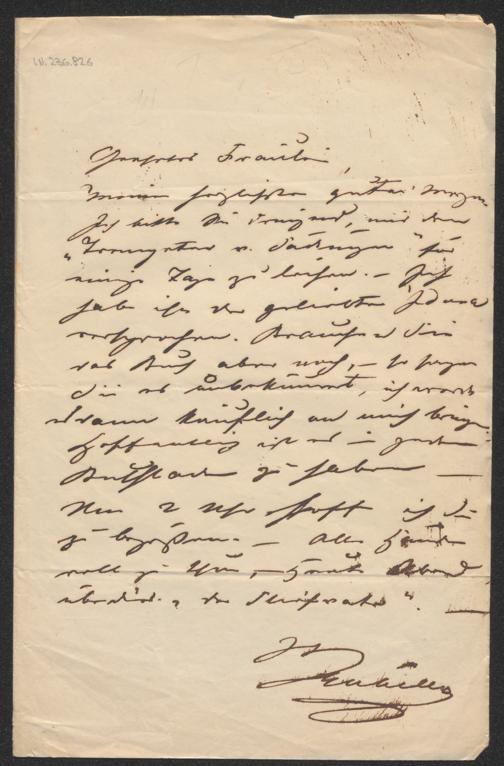 I.N. 236.826
Geehrtes Fräulein,
meinen herzlichsten guten Morgen.
Ich bitte Sie dringend, mir den
"Trompeter v. Säckingen" für
einige Tage zu leihen. – Ich
habe ihn der geliebten
versprochen. Brauchen Sie
das Buch aber noch, – so sagen
Sie es unbekümmert, ich werde
dann käuflich an mich bringen.
Hoffentlich ist es in jedem
Buchladen zu haben —
Um 2 Uhr hoff ich Sie
zu begrüßen. – Alle Hände
voll zu thun, – Heute Abend
überdies "der Stiefvater". —